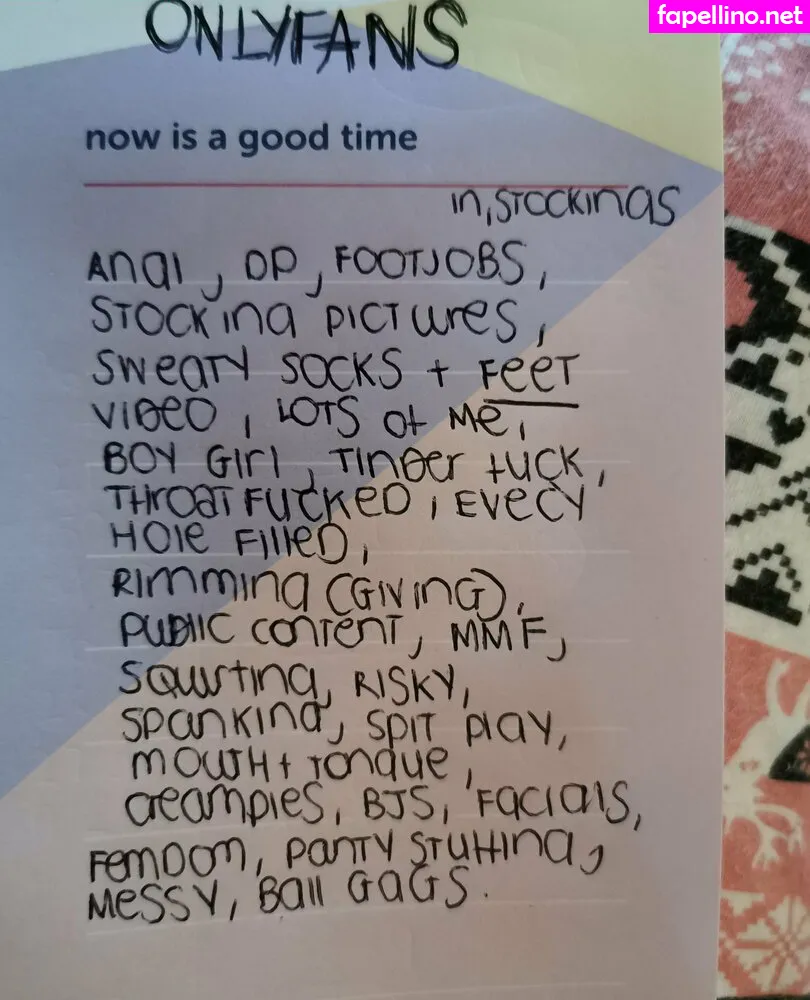 fapellino.net
ONLYFANS
now is a good time
in, STOCKINGS
ANAL, DP, FOOTJOBS,
STOCKING PICTURES,
SWEATY SOCKS + FEET
VIDEO, LOTS OF ME,
BOY GIRL, TINDER FUCK,
THROAT FUCKED, EVERY
HOLE FILLED,
RIMMING (GIVING),
PUBLIC CONTENT, MMF,
SQUIRTING, RISKY,
SPANKING, SPIT PLAY,
MOUTH + TONGUE,
CREAMPIES, BJS, FACIALS,
FEMDOM, PANTY STUFFING,
MESSY, BALL GAGS.